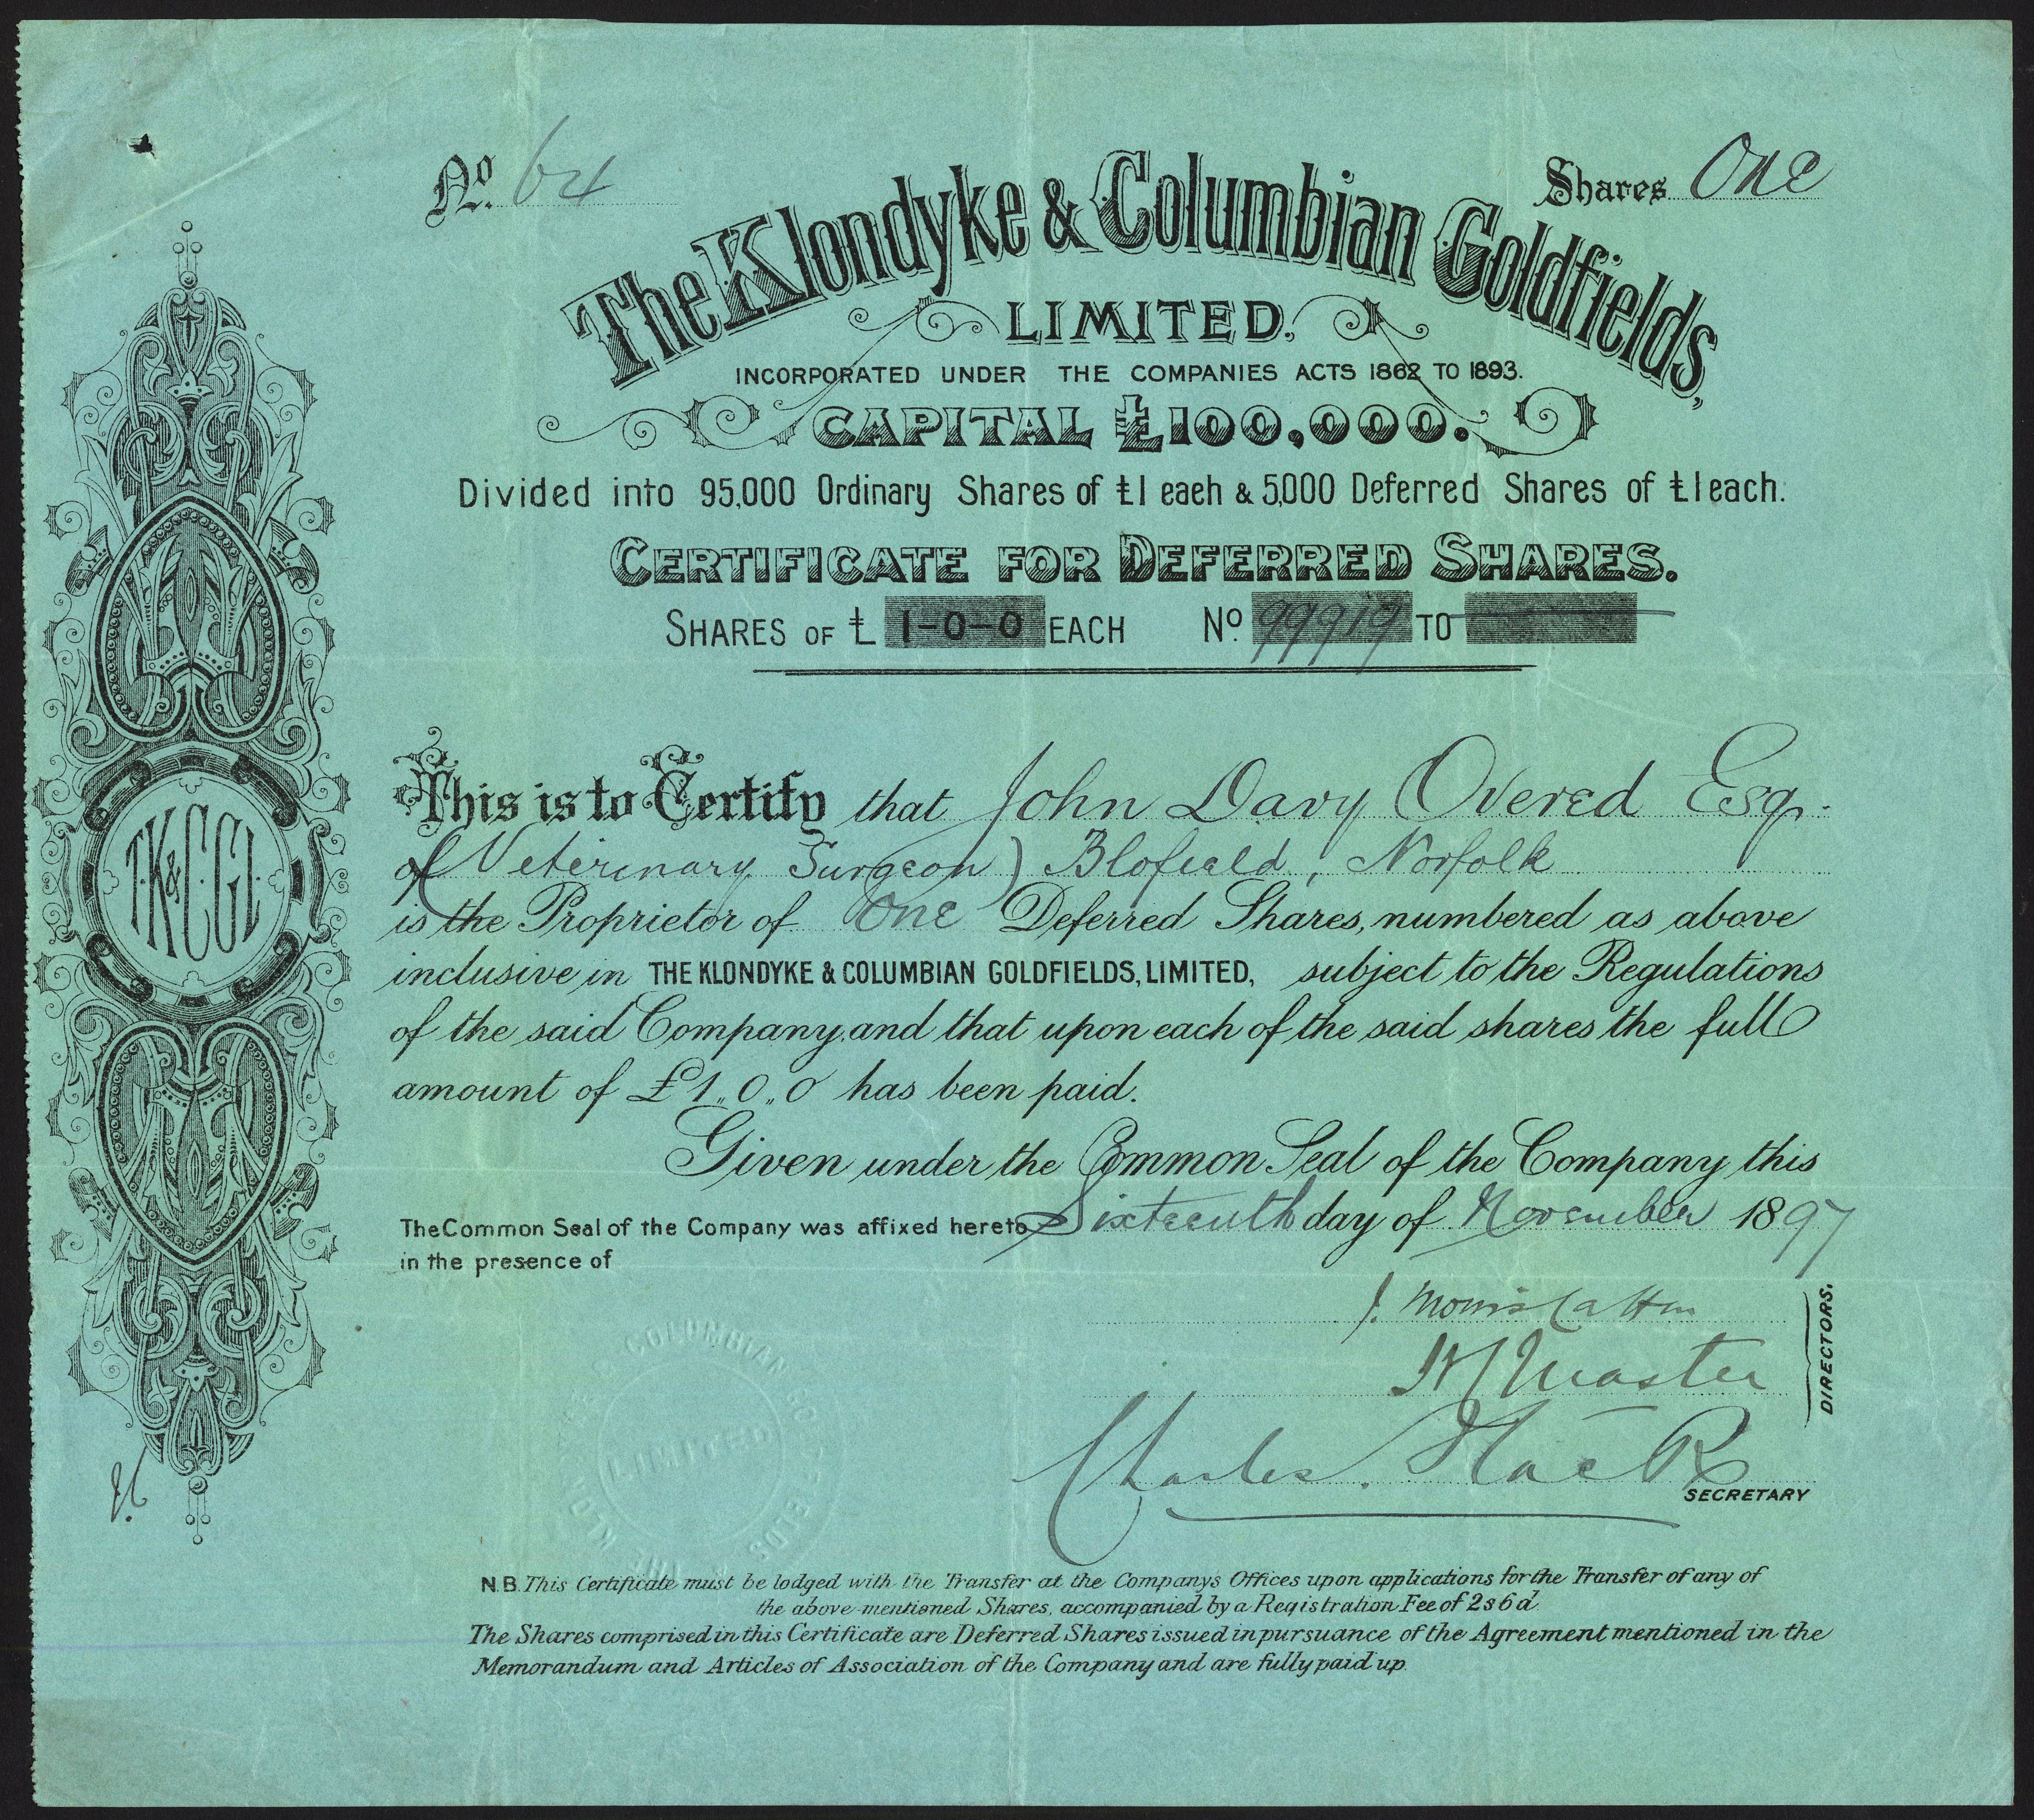 No. 64
Shares One
The Klondyke & Columbian Goldfields,
LIMITED.
INCORPORATED UNDER THE COMPANIES ACTS 1862 TO 1893.
CAPITAL £100,000.
Divided into 95,000 Ordinary Shares of £1 each & 5,000 Deferred Shares of £1 each.
CERTIFICATE FOR DEFERRED SHARES.
SHARES OF £ 1-0-0 EACH No. 99919 TO
This is to Certify that John Davy Overed Esq.
of (Veterinary Surgeon) Blofield, Norfolk
is the Proprietor of One Deferred Shares, numbered as above
inclusive in THE KLONDYKE & COLUMBIAN GOLDFIELDS, LIMITED, subject to the Regulations
of the said Company, and that upon each of the said shares the full
amount of £1..0..0 has been paid.
Given under the Common Seal of the Company this
Sixteenth day of November 1897
The Common Seal of the Company was affixed hereto
in the presence of
T.K.&C.G.L.
J. Morris Catton
Master
DIRECTORS.
Charles
SECRETARY
THE KLONDYKE & COLUMBIAN GOLDFIELDS
LIMITED
N.B. This Certificate must be lodged with the Transfer at the Companys Offices upon applications for the Transfer of any of
the above-mentioned Shares, accompanied by a Registration Fee of 2s 6d.
The Shares comprised in this Certificate are Deferred Shares issued in pursuance of the Agreement mentioned in the
Memorandum and Articles of Association of the Company and are fully paid up.